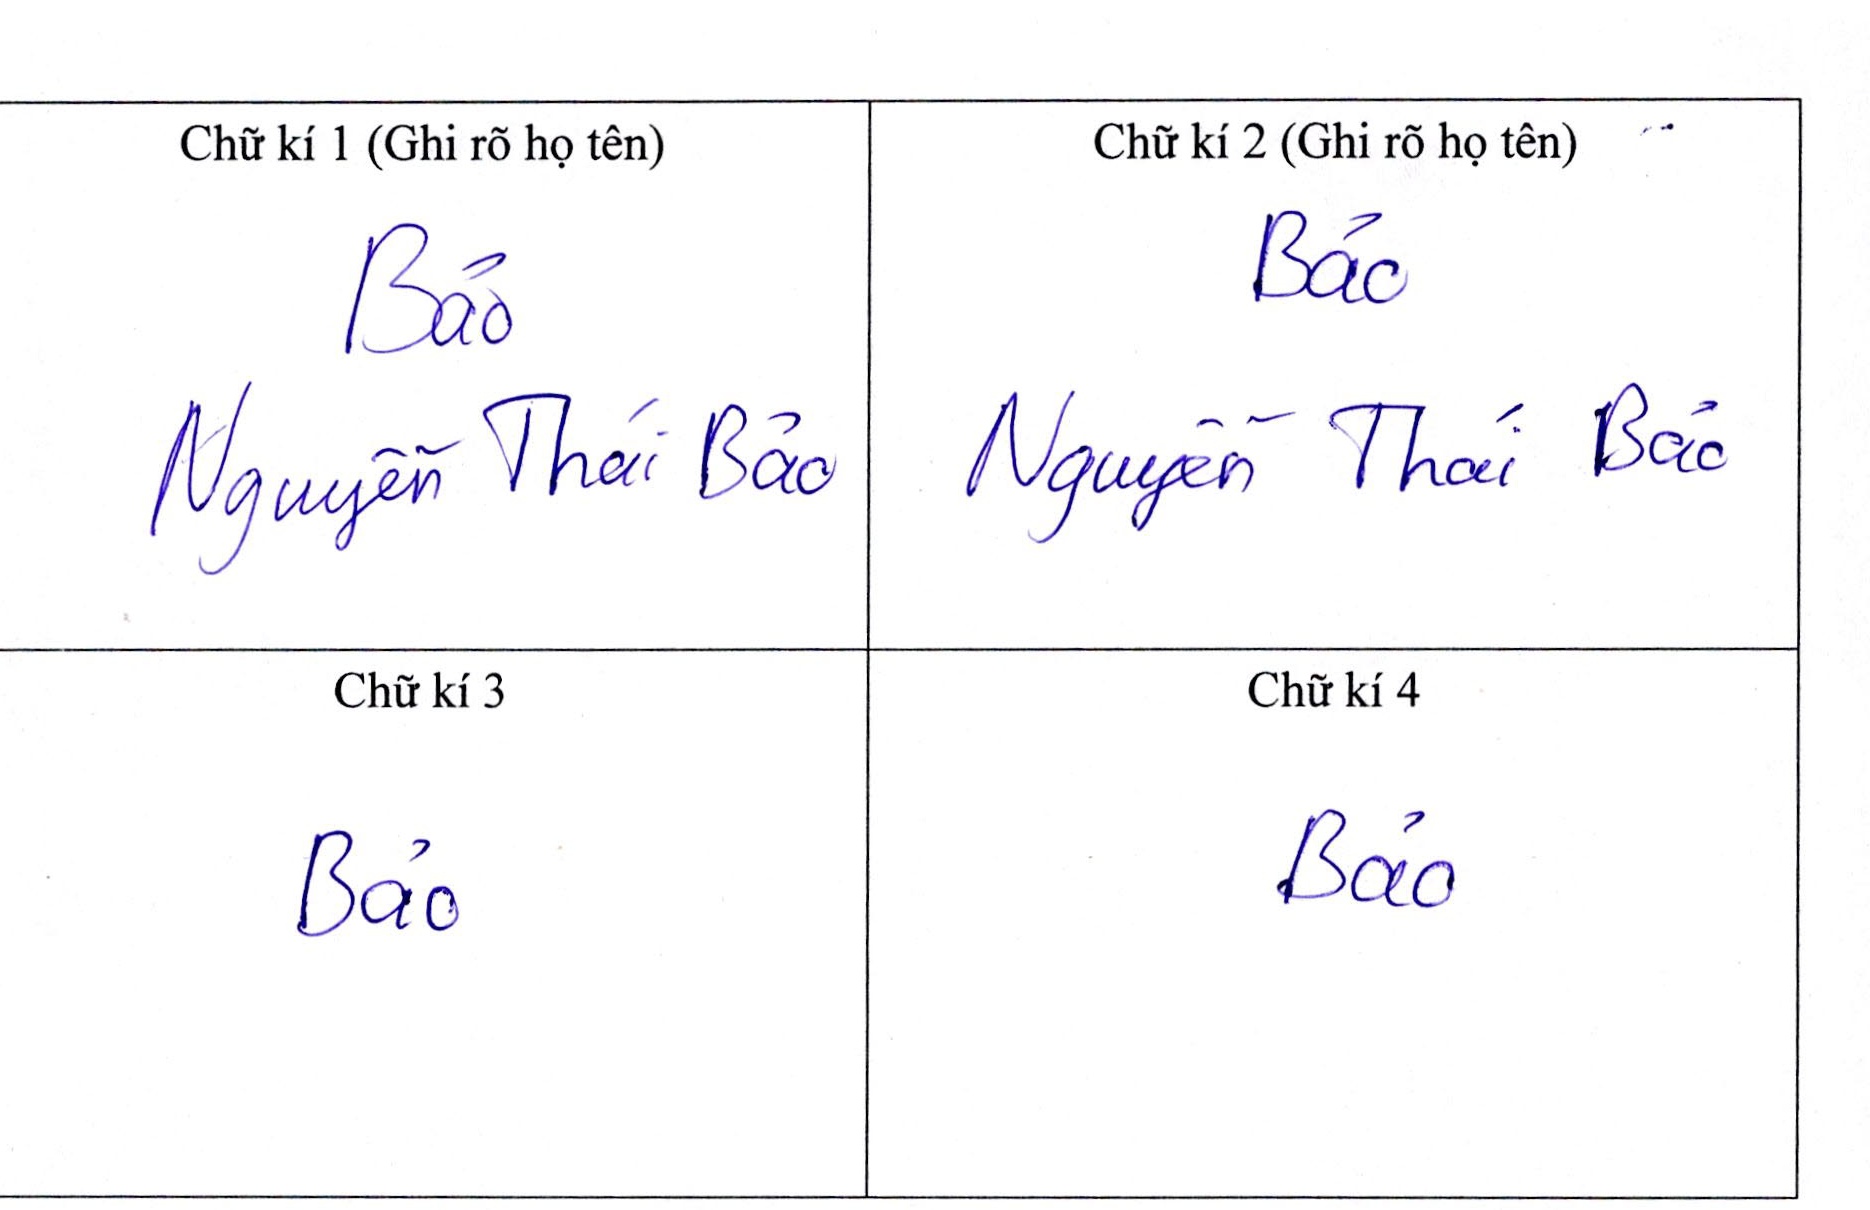 Chữ kí 1 (Ghi rõ họ tên)
Bảo
Nguyễn Thái Bảo
Chữ kí 2 (Ghi rõ họ tên)
Bảo
Nguyễn Thái Bảo
Chữ kí 3
Bảo
Chữ kí 4
Bảo